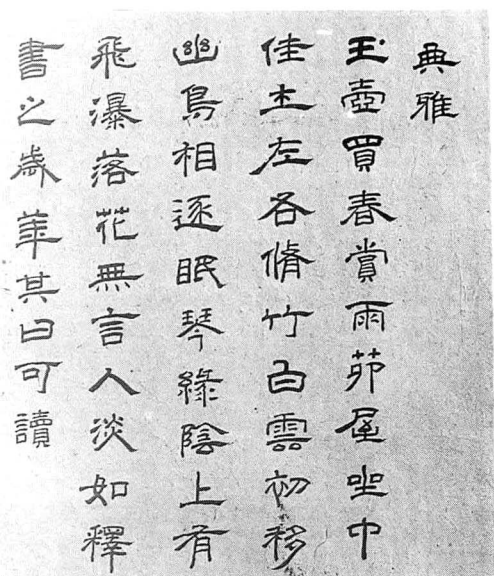 典雅
玉壺買春賞雨茆屋坐中
佳士左各脩竹白雲初移
幽鳥相逐眠琴綠陰上有
飛瀑落花無言人淡如釋
書之歲華其曰可讀